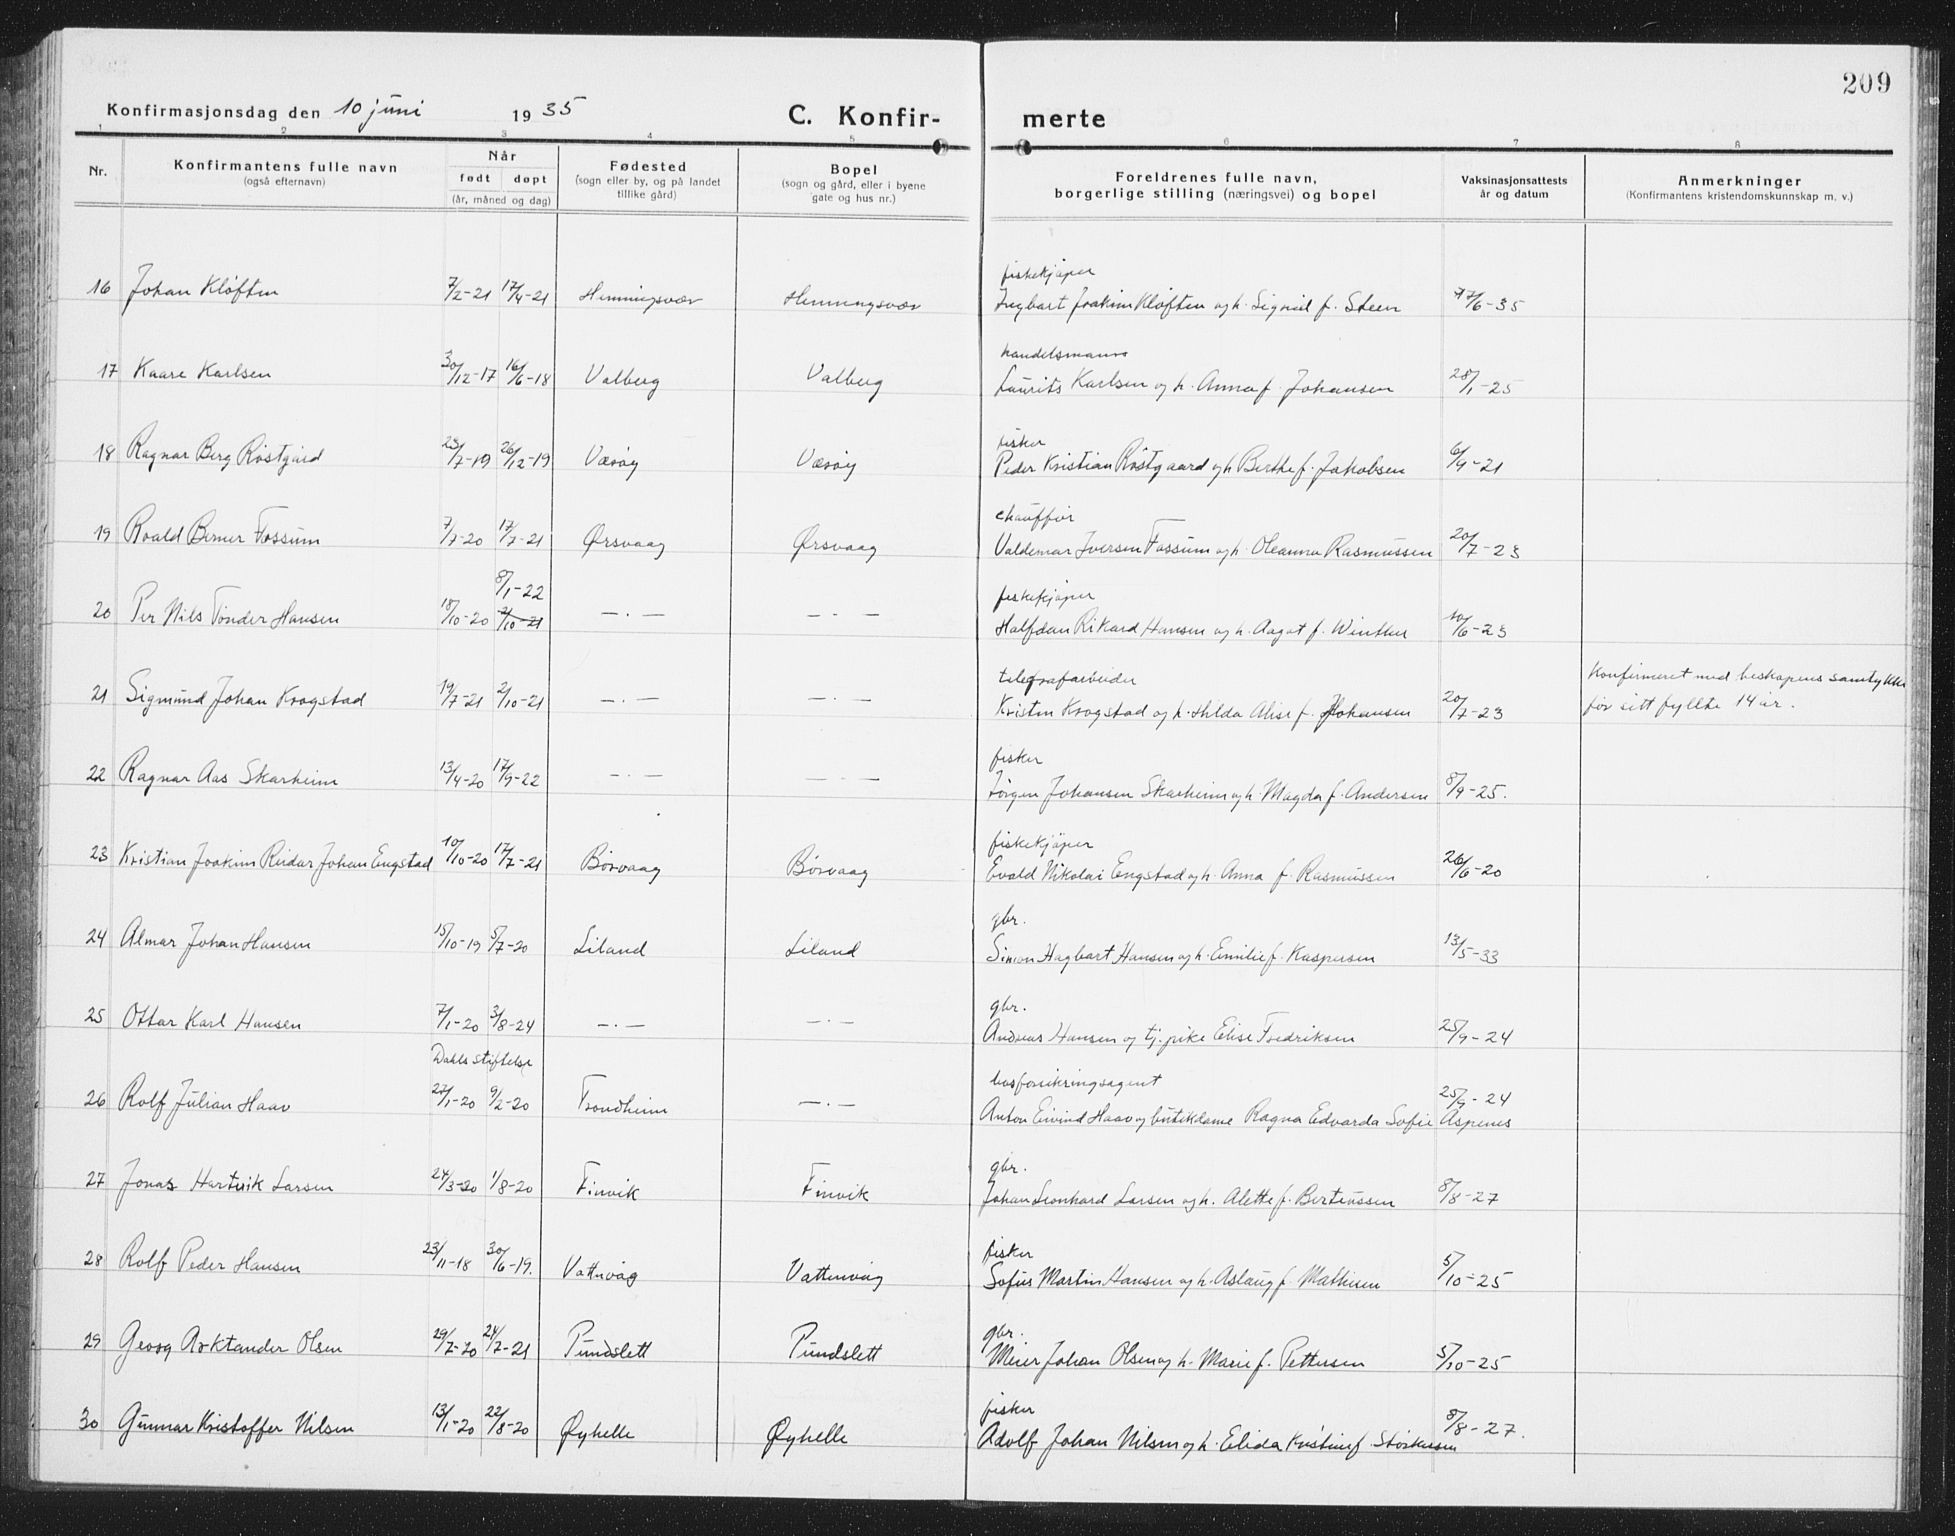 209
Konfirmasjonsdag den 10 juni 1935
C. Konfir- merte
1 2 3 4 5 6 7 8
Nr. Konfirmantens fulle navn (også efternavn) Når født døpt (år, måned og dag) Fødested (sogn eller by, og på landet tillike gård) Bopel (sogn og gård, eller i byene gate og hus nr.) Foreldrenes fulle navn, borgerlige stilling (næringsvei) og bopel Vaksinasjonsattests år og datum Anmerkninger (Konfirmantens kristendomskunnskap m. v.)
fiskekjøper
16 Johan Kløften 7/2-21 17/4-21 Henningsvær Henningsvær Ingbart Joakim Kløften og h. Signid f. Steen 17/6-35
handelsmann
17 Kaare Karlsen 30/12-17 16/6-18 Valberg Valberg Laurits Karlsen og h. Anna f. Johansen 28/1-25
fisker
18 Ragnar Berg Røstgård 23/7-19 26/12-19 Værøy Værøy Peder Kristian Røstgaard og h Berthe f. Jakobsen 6/4-21
chauffør
19 Roald Berner Fossum 7/7-20 17/7-21 Ørsvaag Ørsvaag Valdemar Iversen Fossum og h. Oleanna Rasmussen 20/7-23
8/1-22
fiskekjøper
20 Per Nils Tønder Hansen 18/10-20 2/10-21 —·— —·— Halfdan Rikard Hansen og h. Aagot f. Winther 10/6-23
telegrafarbeider
Konfirmeret med biskopens samtykke
21 Sigmund Johan Krogstad 19/7-21 2/10-21 —·— —·— Kristen Krogstad og h. Hilda Alise f. Johansen 20/7-23 før sitt fyllte 14 år.
fisker
22 Ragnar Aas Skarheim 13/4-20 17/9-22 —·— —·— Jørgen Johansen Skarheim og h. Magda f. Andersen 8/9-25.
fiskekjøper
23 Kristian Joakim Reidar Johan Engstad 10/10-20 17/7-21 Børvaag Børvaag Evald Nikolai Engstad og h. Anna f. Rasmussen 26/6-20
gbr.
24 Almar Johan Hansen 15/10-19 5/7-20 Liland Liland Simon Hagbart Hansen og h. Emilie f. Kaspersen 13/5-33
gbr.
25 Ottar Karl Hansen 7/1-20 3/8-24 —·— —·— Andreas Hansen og tj. pike Elise Fredriksen 25/9-24
Dahls stiftelse
livsforsikringsagent
26 Rolf Julian Haav 27/1-20 9/2-20 Trondheim —·— Anton Eivind Haav og butikdame Ragna Edvarda Sofie Aspenes 25/9-24
gbr.
27 Jonas Hartvik Larsen 24/3-20 1/8-20 Finvik Finvik Johan Leonhard Larsen og h. Alette f. Berteussen 8/8-27
fisker
28 Rolf Peder Hansen 23/11-18 30/6-19. Vattnvåg Vattenvåg Sofus Martin Hansen og h. Aslaug f. Mathisen 5/10-25
gbr.
29 Georg Arktander Olsen 29/7-20 24/7-21 Pundslett Pundslett Meier Johan Olsen og h. Marie f. Pettersen 5/10-25
fisker
30 Gunnar Kristoffer Nilsen 13/1-20 22/8-20 Øyhelle Øyhelle Adolf Johan Nilsen og h. Elida Kristine f. Størkersen 8/8-27.